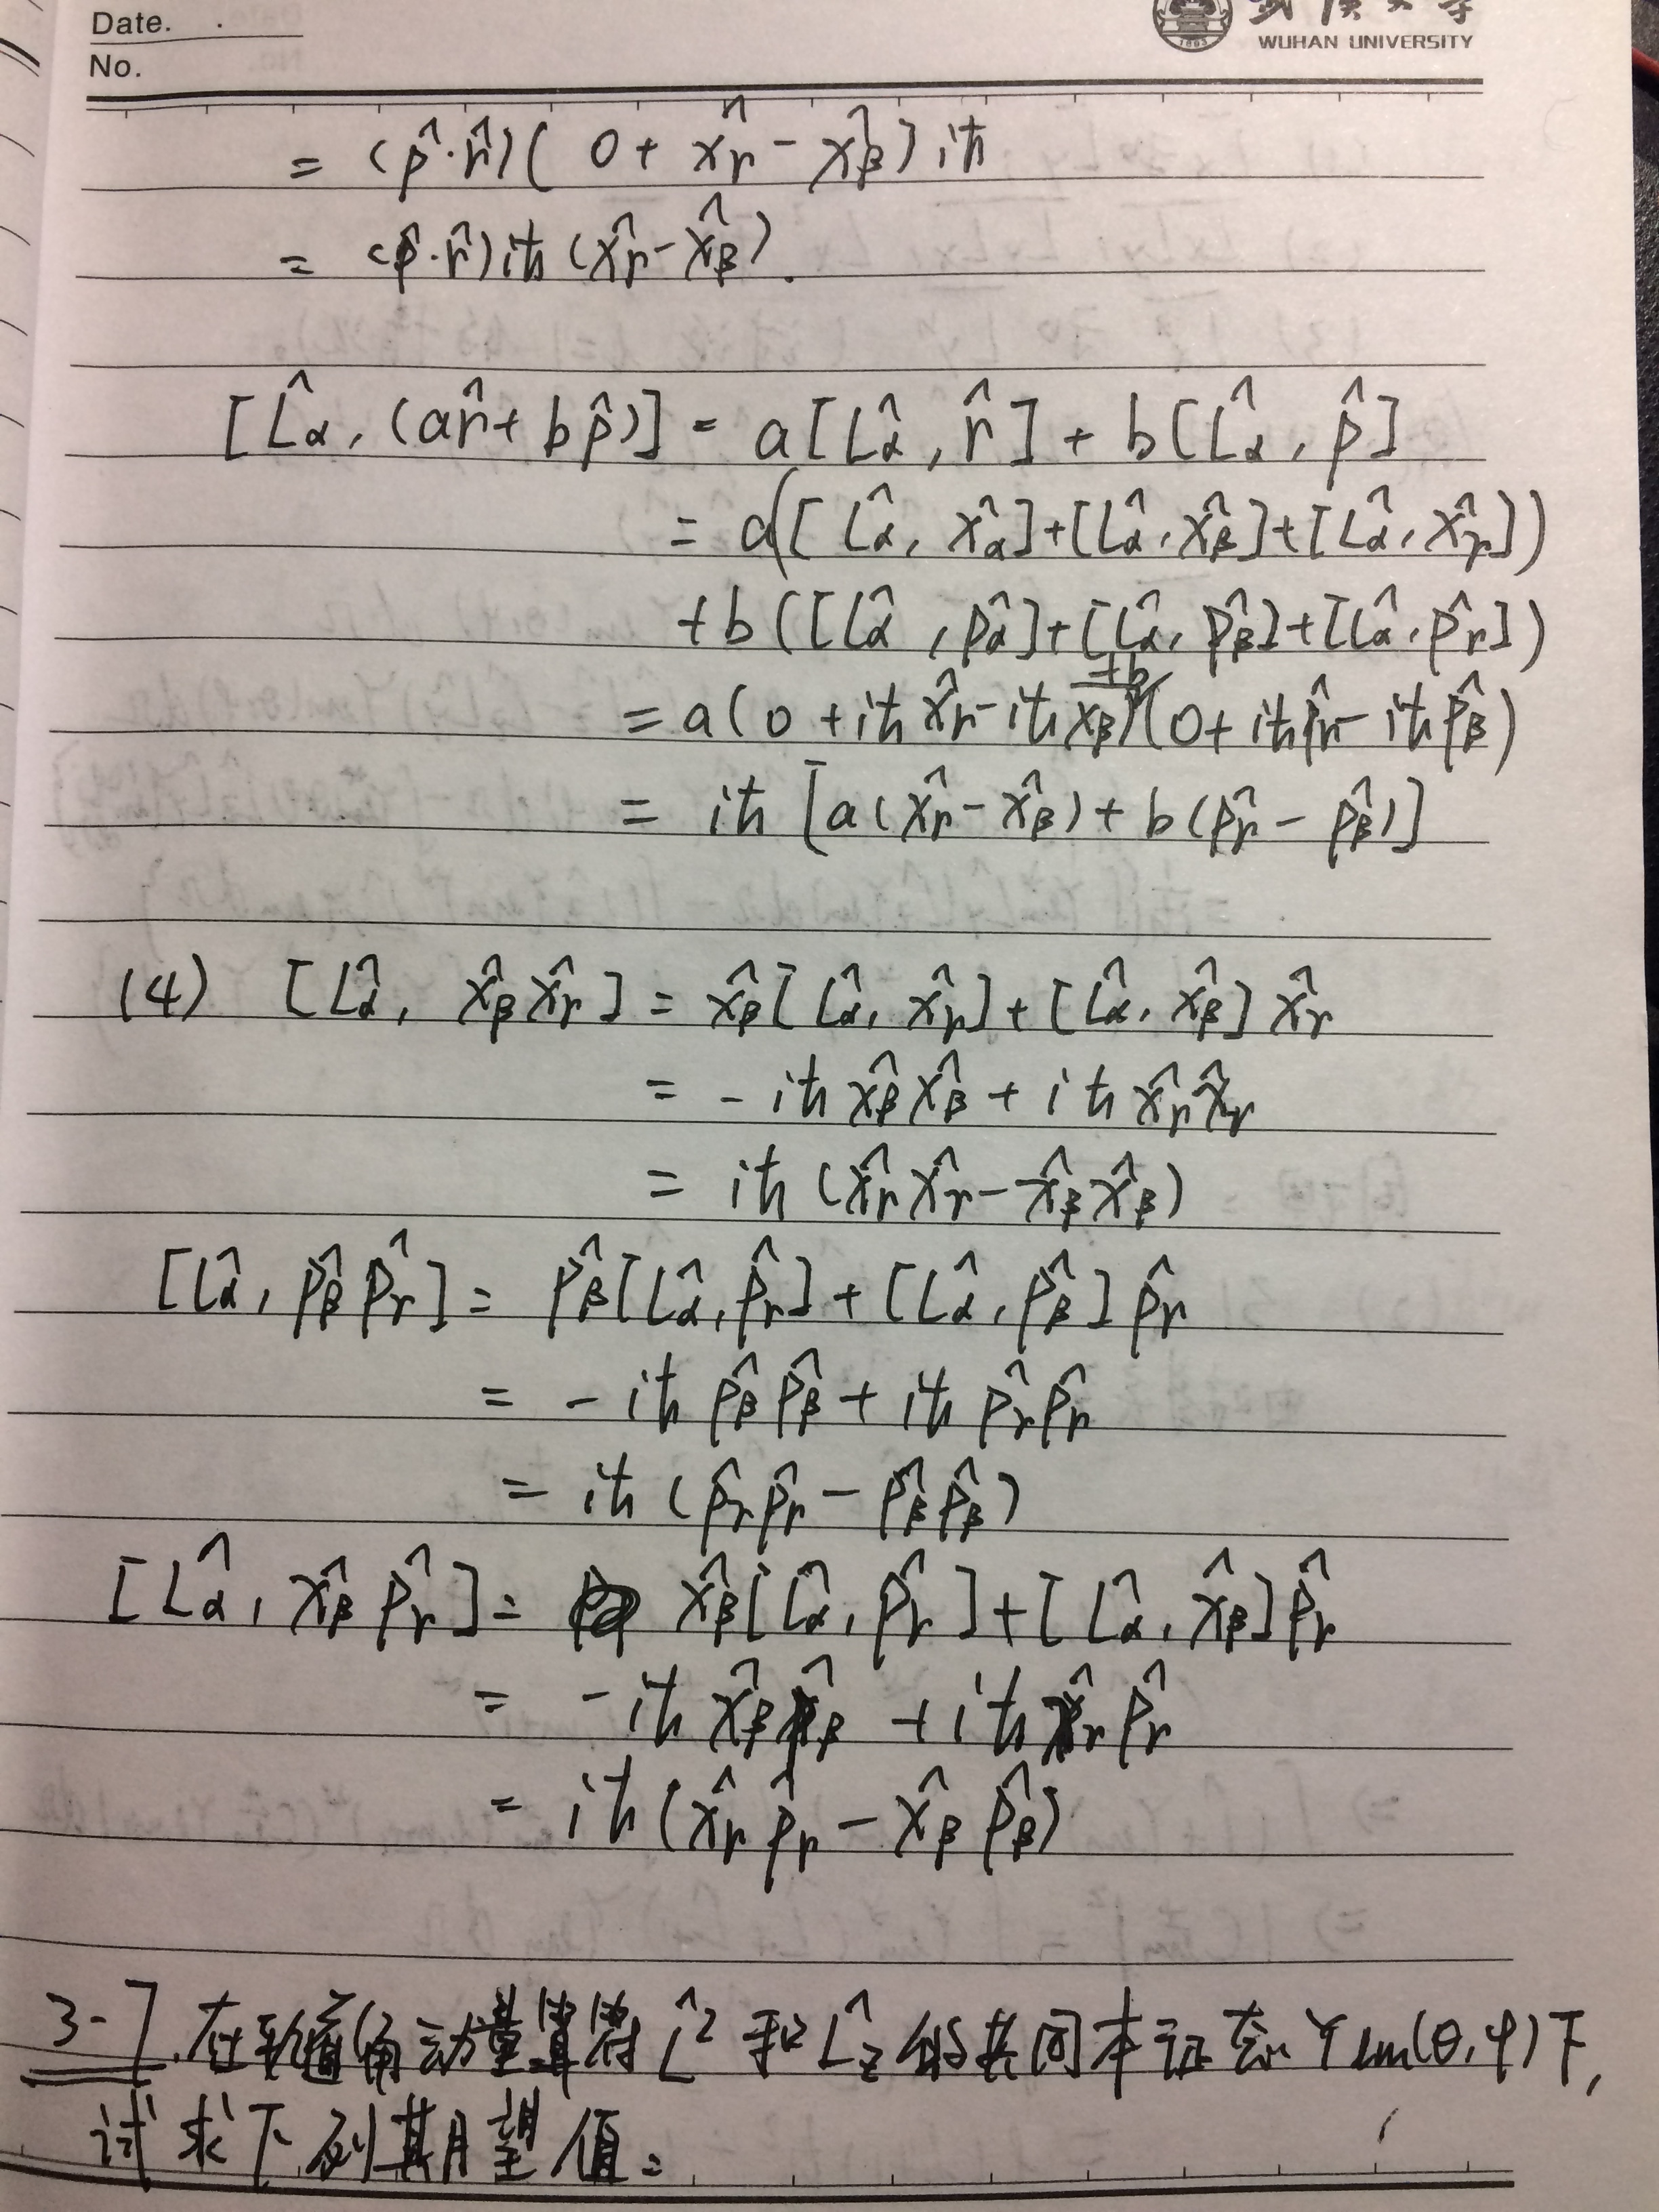 Date.
No.
武汉大学
WUHAN UNIVERSITY
1893
= (p̂·r̂)( 0 + x̂r - x̂β ) iħ
= (p̂·r̂) iħ (x̂r - x̂β).
[L̂α, (ar̂ + bp̂)] = a[L̂α, r̂] + b[L̂α, p̂]
= a([L̂α, x̂α] + [L̂α, x̂β] + [L̂α, x̂r])
+ b([L̂α, p̂α] + [L̂α, p̂β] + [L̂α, p̂r])
= a(0 + iħ x̂r - iħ x̂β) +b (0 + iħ p̂r - iħ p̂β)
= iħ [a(x̂r - x̂β) + b(p̂r - p̂β)]
(4) [L̂α, x̂β x̂r] = x̂β[L̂α, x̂r] + [L̂α, x̂β] x̂r
= - iħ x̂β x̂β + iħ x̂r x̂r
= iħ (x̂r x̂r - x̂β x̂β)
[L̂α, p̂β p̂r] = p̂β[L̂α, p̂r] + [L̂α, p̂β] p̂r
= - iħ p̂β p̂β + iħ p̂r p̂r
= iħ (p̂r p̂r - p̂β p̂β)
[L̂α, x̂β p̂r] = x̂β[L̂α, p̂r] + [L̂α, x̂β] p̂r
= - iħ x̂β p̂β + iħ x̂r p̂r
= iħ (x̂r p̂r - x̂β p̂β)
3-7. 在轨道角动量算符 L̂² 和 L̂z 的共同本征态 Ylm(θ,φ)下,
试求下列期望值: